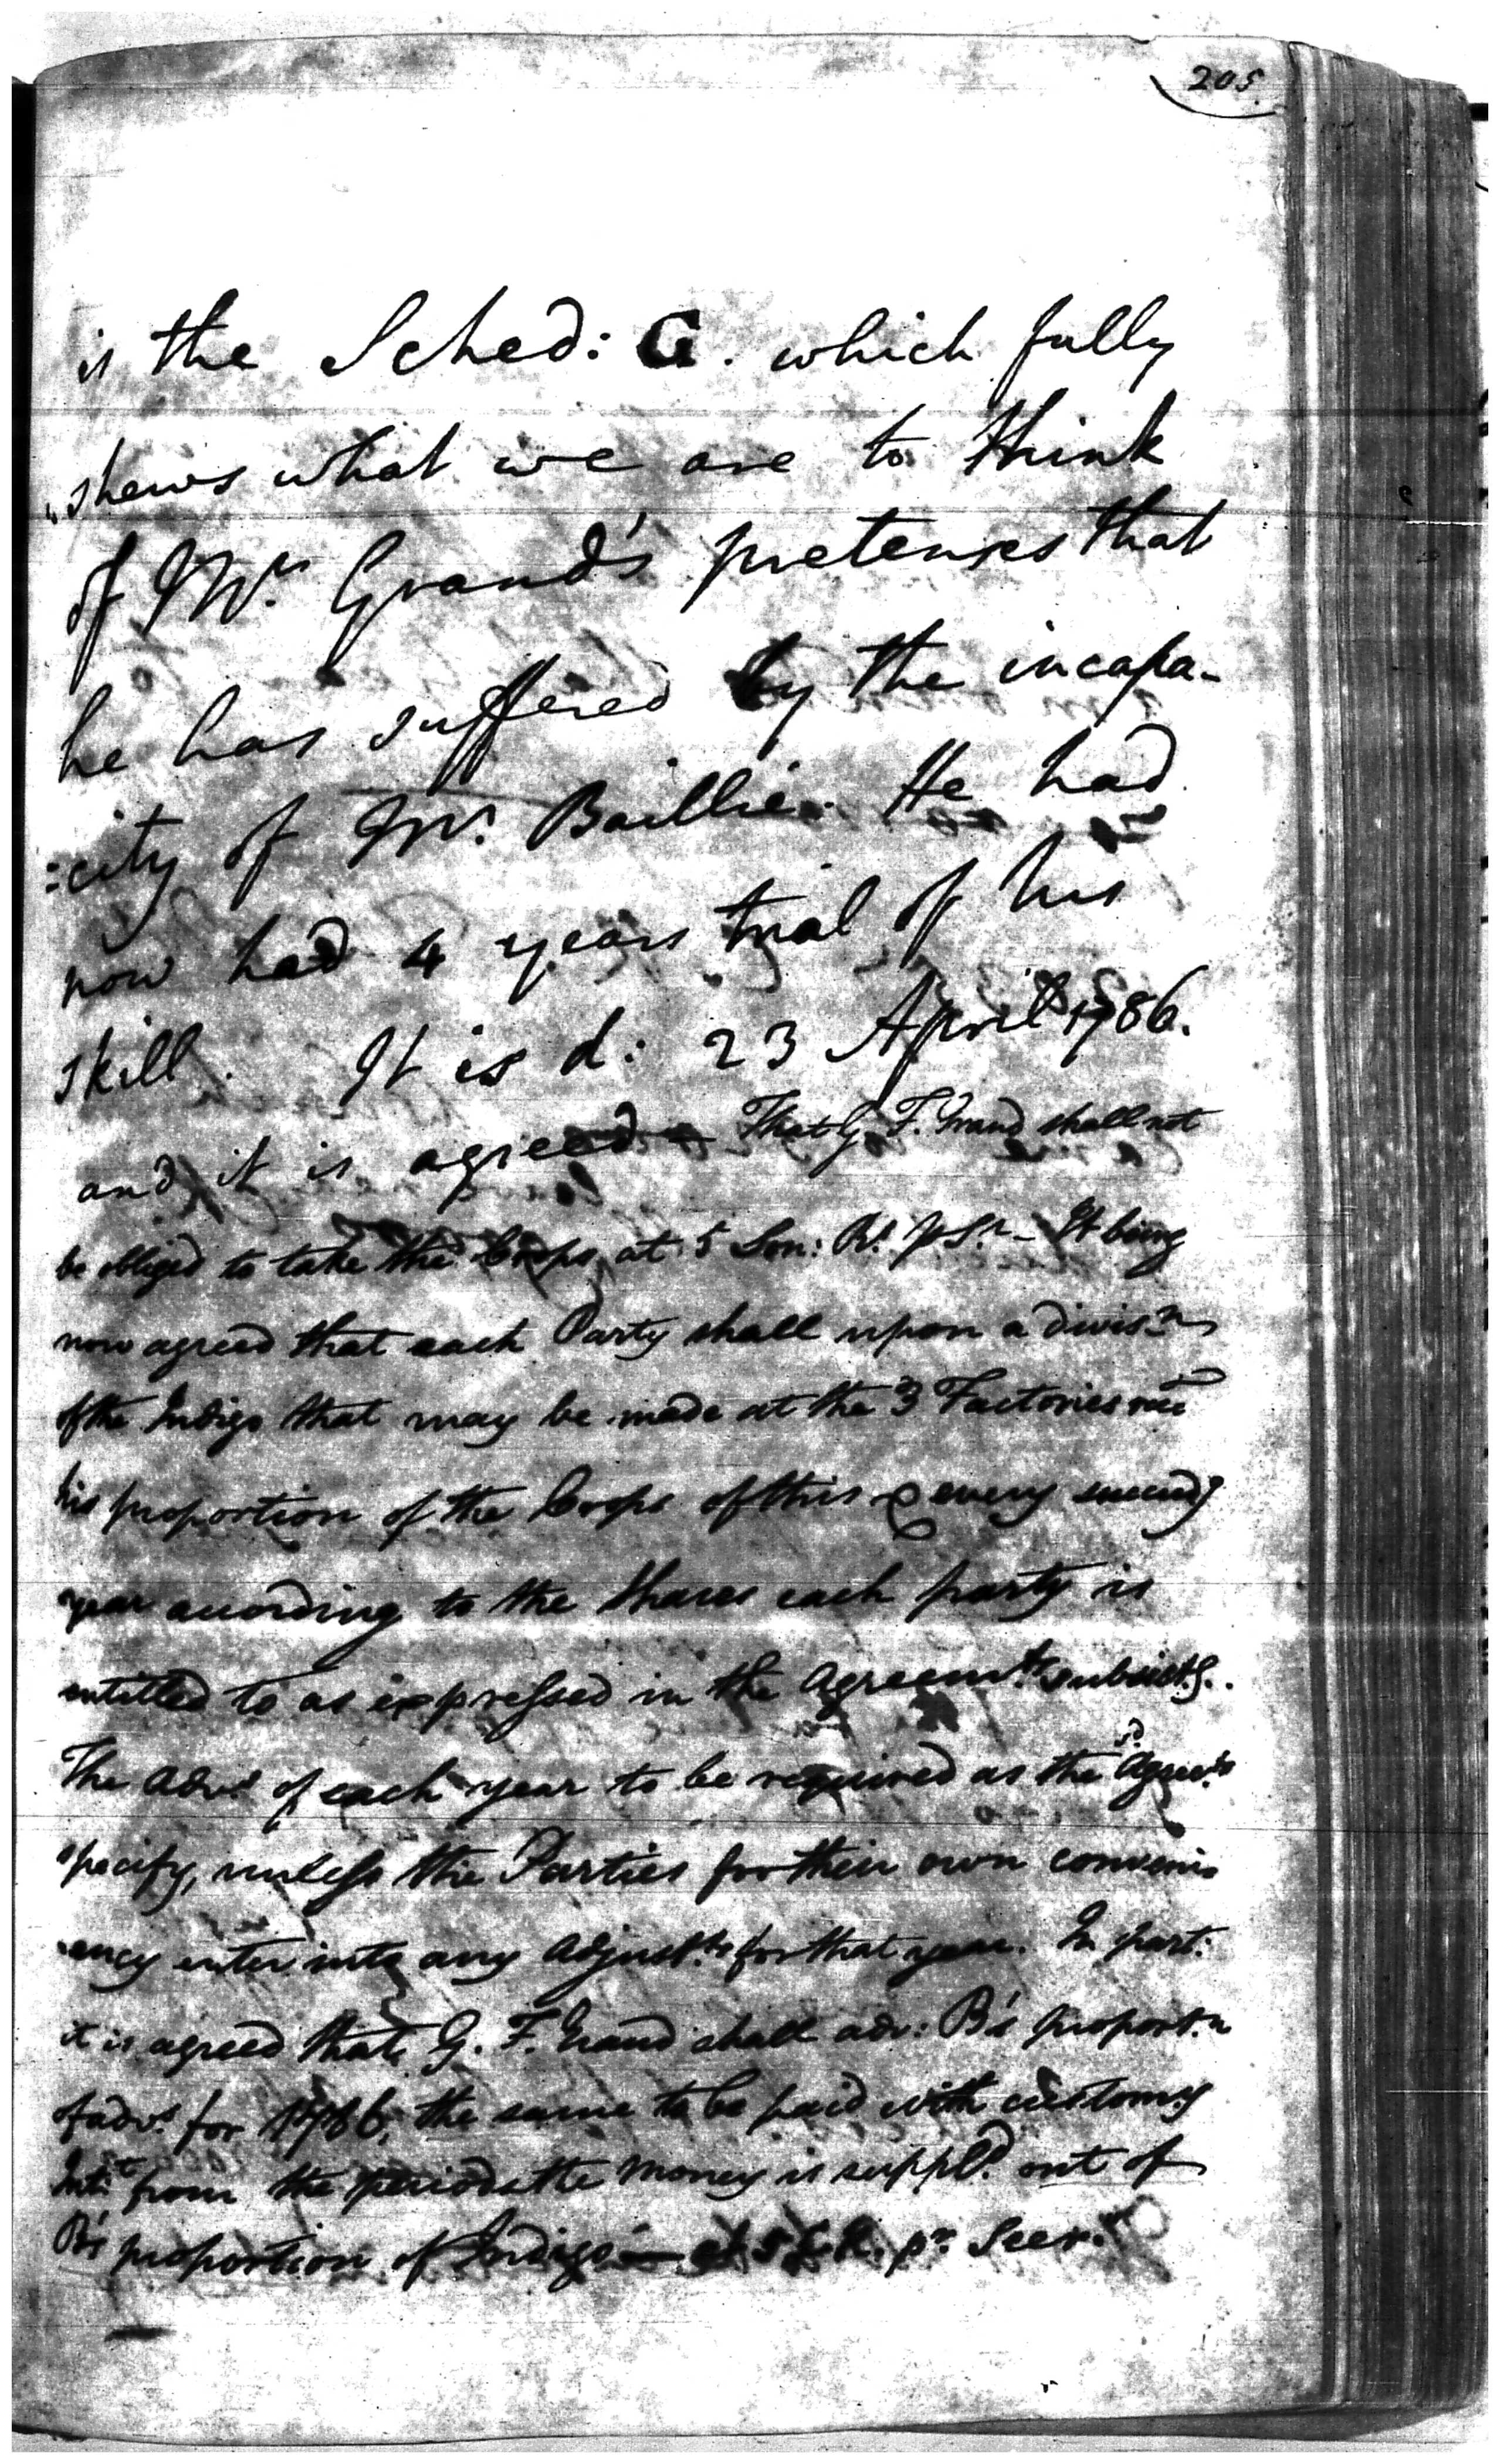 205.
is the Sched: G. which fully
"shews what we are to think
of Mr. Grand's pretences that
he has suffered by the incapa-
:city of Mr. Baillie. He had
now had 4 years trial of his
skill. It is d: 23 April 1786.
and it is agreed — That G. F. Grand shall not
be obliged to take the Crops at 5 Son: Rs. pSr. – It being
now agreed that each Party shall upon a divisn
of the Indigo that may be made at the 3 Factories
his proportion of the Crops of this & every succeedg
year according to the shares each party is
entitled to as expressed in the Agreemts subsistg.
The Advs of each year to be required as the sd Agreets
specify, unless the Parties for their own conveni-
ency enter into any Adjustts for that year. In part:
it is agreed that G. F. Grand shall adv: B's proportn
of advs for 1786, the same to be paid with customy
Intt from the periods the money is suppld out of
B's proportion of Indigo — at 5 S. R. pr. Seer.